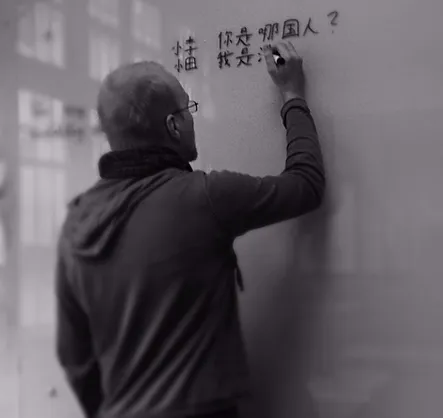 小王 你是哪国人？
小田 我是